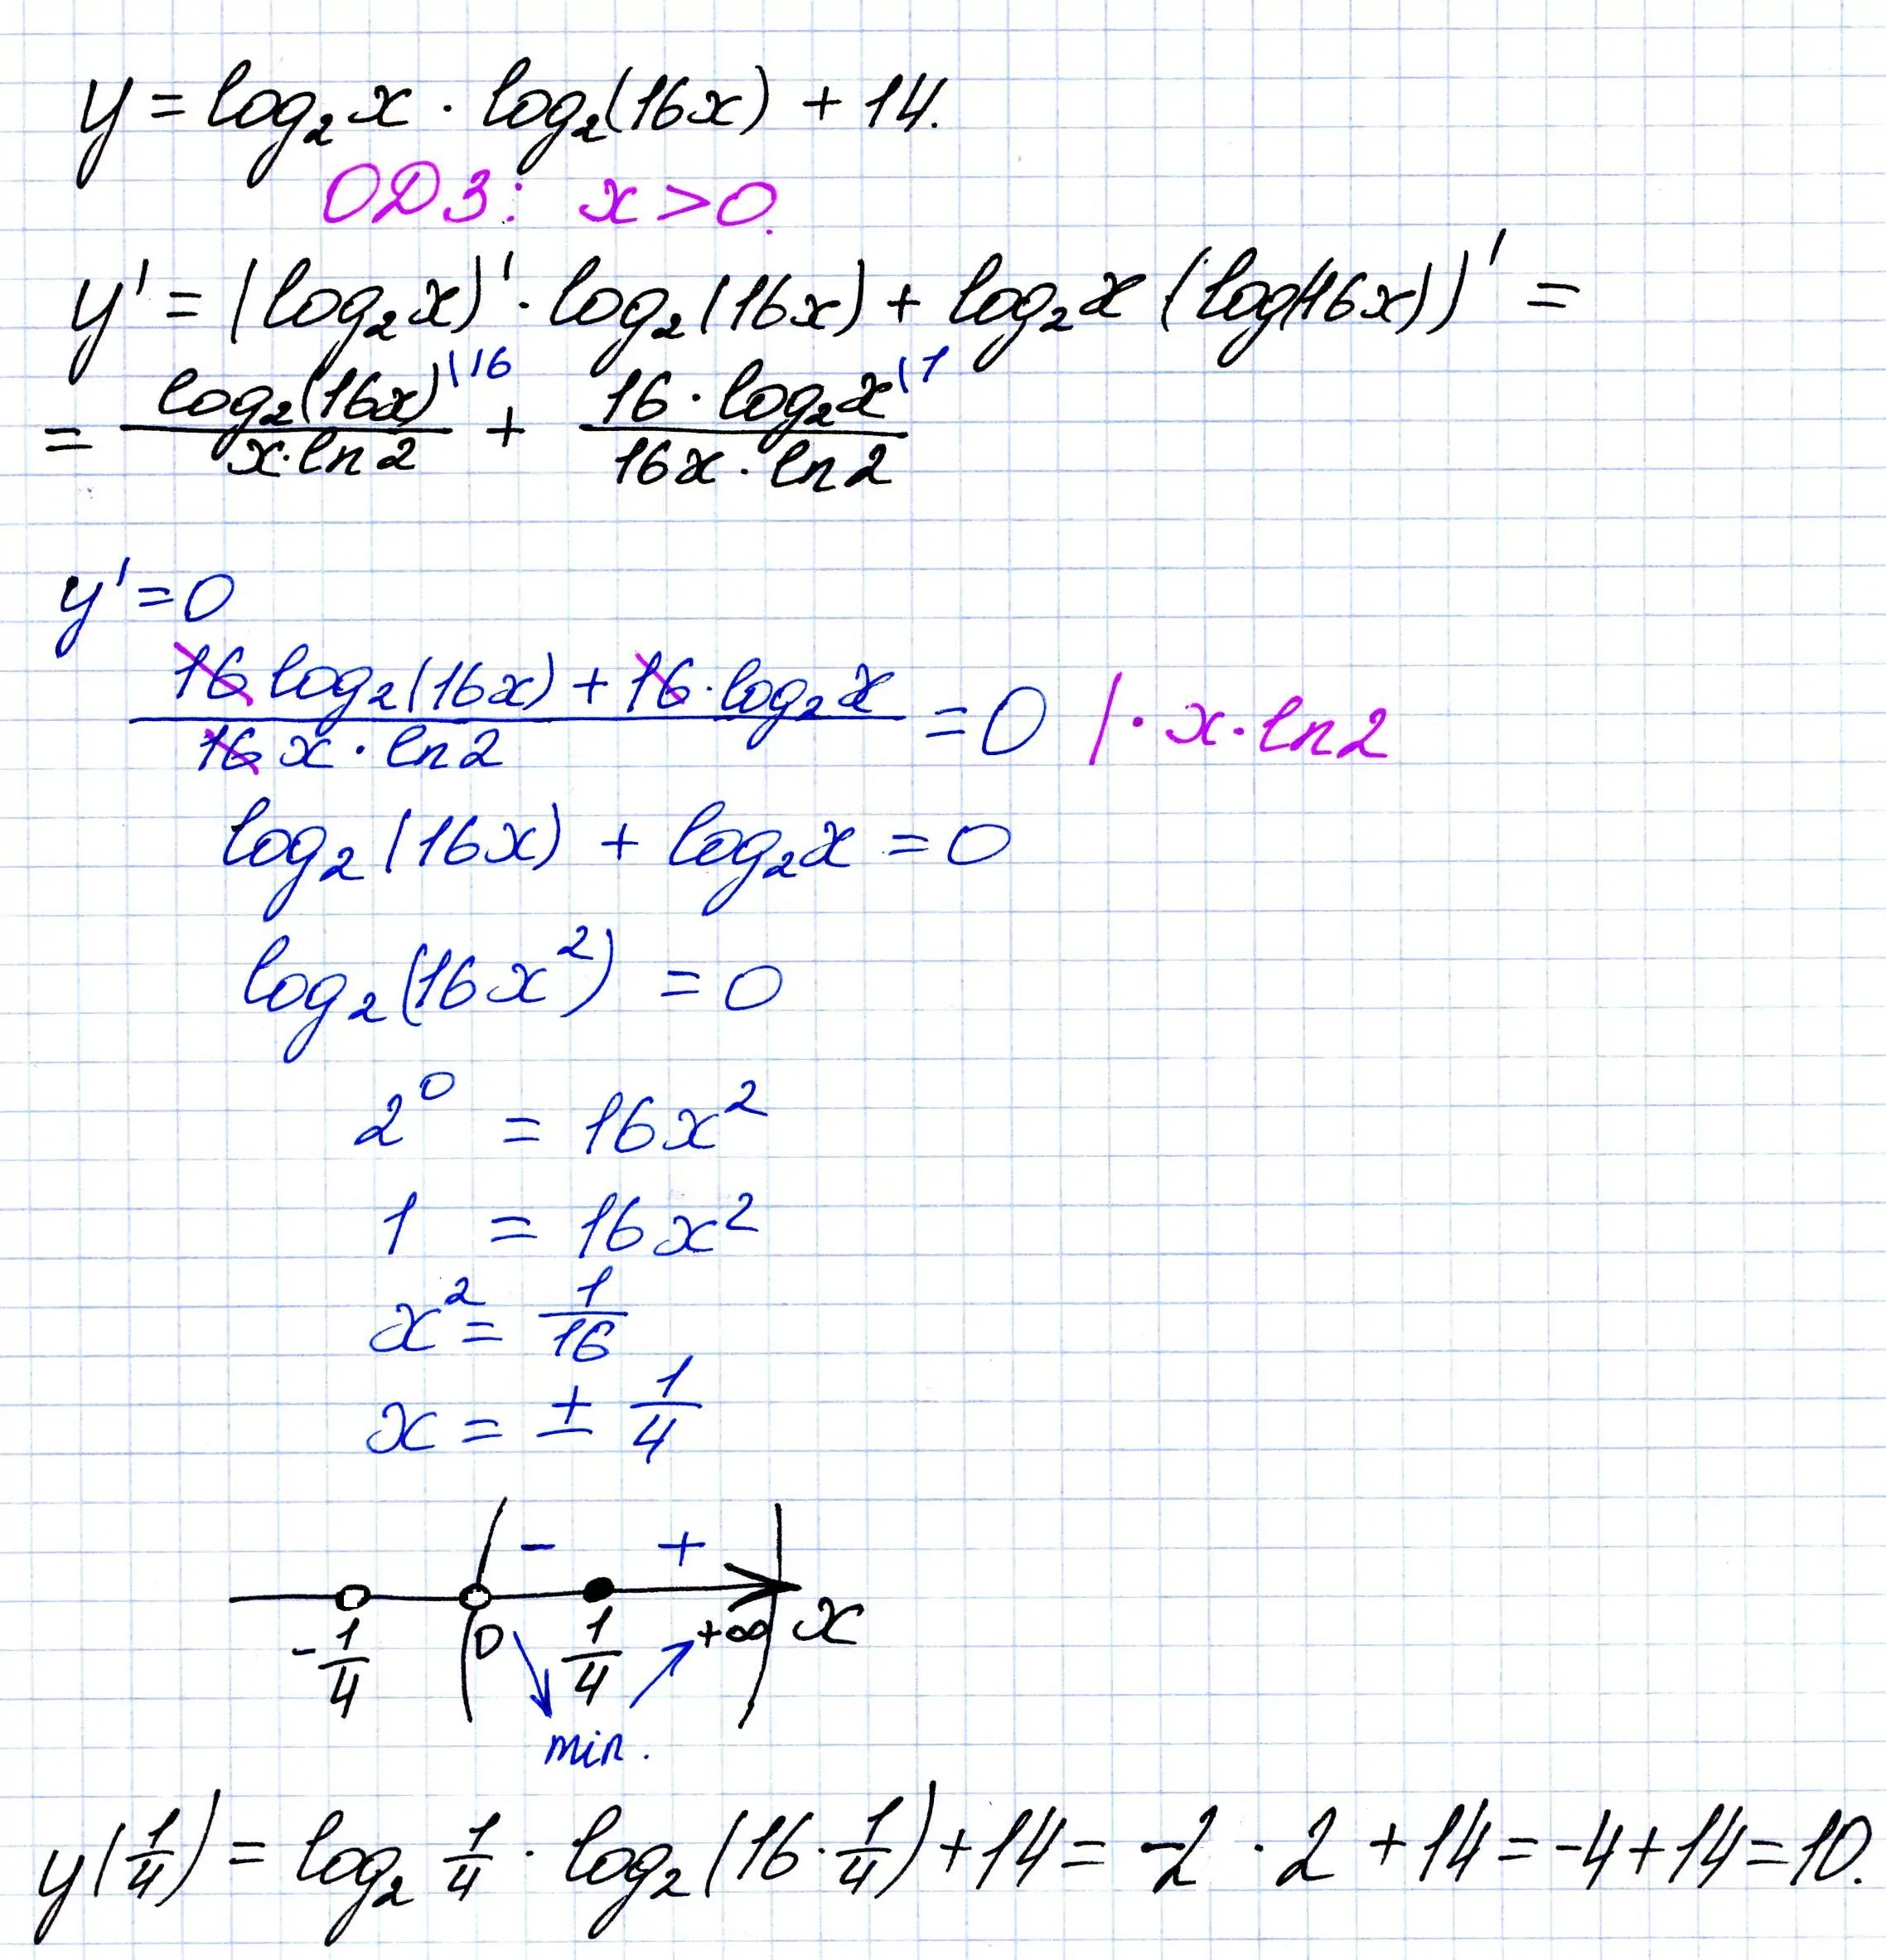 y = log₂x · log₂(16x) + 14.
ОДЗ: x > 0.
y' = (log₂x)' · log₂(16x) + log₂x (log(16x))' =
= log₂(16x)⁽¹⁶ / x·ln2 + 16·log₂x⁽¹ / 16x·ln2
y' = 0
16 log₂(16x) + 16·log₂x / 16x·ln2 = 0 | · x·ln2
log₂(16x) + log₂x = 0
log₂(16x²) = 0
2⁰ = 16x²
1 = 16x²
x² = 1/16
x = ± 1/4
- +
-1/4 0 1/4 +∞ x
min.
y(1/4) = log₂ 1/4 · log₂(16·1/4) + 14 = -2 · 2 + 14 = -4 + 14 = 10.